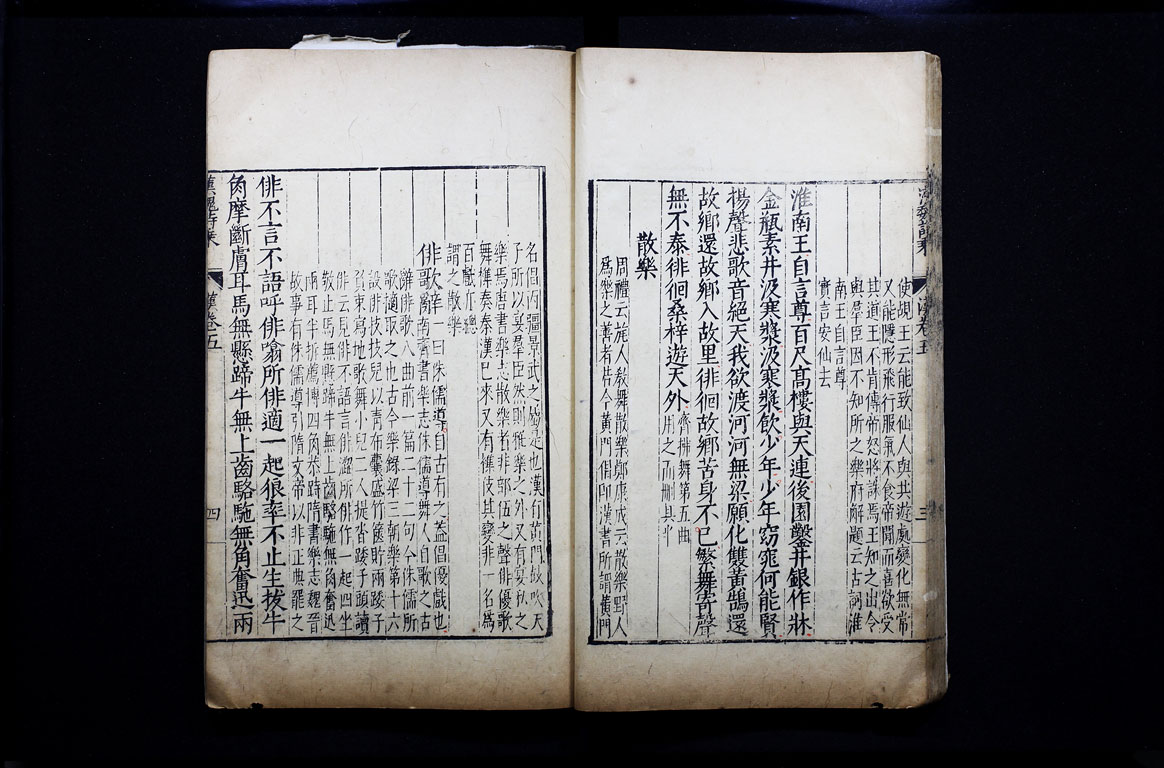 使覡王云能致仙人與共遊處變化無常
又能隱形飛行服氣不食帝聞而喜欲受
其道王不肯傳帝怒將誅焉王知之出令
與羣臣因不知所之樂府解題云古詞淮
南王自言尊
實言安仙去
淮南王自言尊百尺高樓與天連後園鑿井銀作牀
金瓶素井汲寒漿汲寒漿飲少年少年窈窕何能賢
揚聲悲歌音絕天我欲渡河河無梁願化雙黃鵠還
故鄉還故鄉入故里徘徊故鄉苦身不已繁舞寄聲
無不泰徘徊桑梓遊天外齊拂舞第五曲
用之而刪其半
散樂
周禮云旄人教舞散樂鄭康成云散樂野人
為樂之善者若今黃門倡即漢書所謂黃門
名倡丙彊景武之屬是也漢有黃門鼓吹天
子所以宴羣臣然則雅樂之外又有宴私之
樂焉唐書樂志散樂者非部伍之聲俳優歌
舞雜奏秦漢已來又有雜伎其變非一名為
百戲亦總
謂之散樂
俳歌辭一曰侏儒導自古有之蓋倡優戲也
南齊書樂志侏儒導舞人自歌之古
辭俳歌八曲前一篇二十二句今侏儒所
歌擿取之也古今樂錄梁三朝樂第十六
設俳技技兒以青布囊盛竹篋貯兩踒子
負束寫地歌舞小兒二人提沓踒子頭讀
俳云見俳不語言俳澀所俳作一起四坐
敬止馬無懸蹄牛無上齒駱駝無角奮迅
兩耳半拆薦博四角恭跱隋書樂志魏晉
故事有侏儒導引隋文帝以非正典罷之
俳不言不語呼俳噏所俳適一起狼率不止生拔牛
角摩斷膚耳馬無懸蹄牛無上齒駱駞無角奮迅兩
漢魏詩乘
漢卷五
四